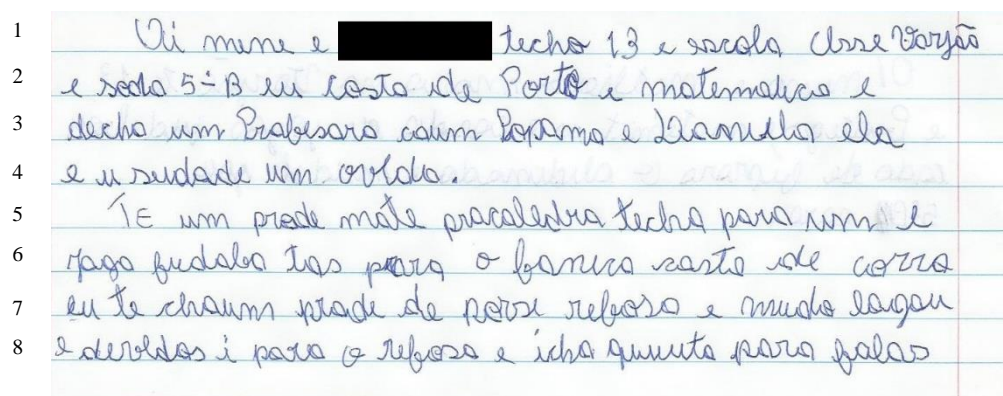 1 Oi mene e techo 13 e escola Clsse Varjão
2 e sodo 5ª B eu costa de Porto e matematica e
3 decho um Prabesara caum Popama e ela
4 e u sudade um ovldo.
5 TE um prode mate pracaledra techa para um e
6 jago fudaba tas para o fanuca sasta de corra
7 eu te chaum prade de porsi refosa e mudo lagau
8 e derldos i para o refosa e icha qumuta para falas